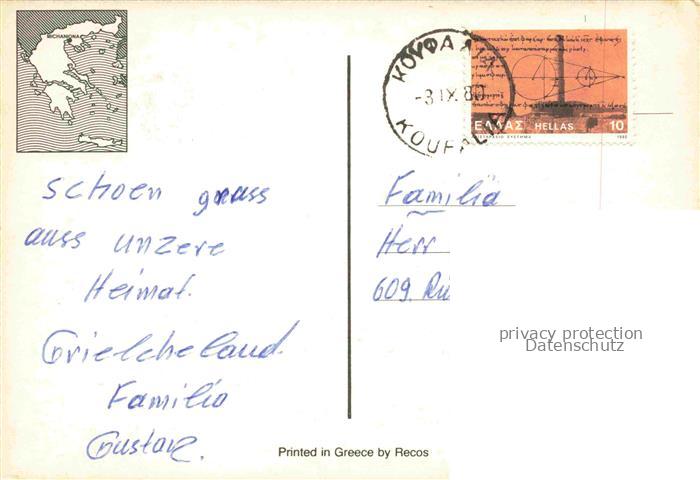 MICHANIONA
ΚΟΥΦΑΛΙΑ
-3 IX 80
KOUFALIA
ΕΛΛΑΣ HELLAS 10
1980
Schoen gruass
auss unzere
Heimat.
Grielcheland
Familia
Gustav.
Familia
Herr
609. Rü
privacy protection
Datenschutz
Printed in Greece by Recos